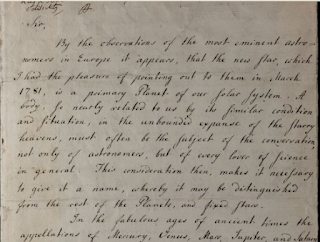 Sir,
By the observations of the most eminent astro-
nomers in Europe it appears, that the new star, which
I had the pleasure of pointing out to them in March
1781, is a primary Planet of our Solar System. A
body so nearly related to us by its similar condition
and situation, in the unbounded expanse of the starry
heavens, must often be the subject of the conversation,
not only of astronomers, but of every lover of science
in general. This consideration then, makes it necessary
to give it a name, whereby it may be distinguished
from the rest of the Planets, and fixed stars.
In the fabulous ages of ancient times the
appellations of Mercury, Venus, Mars, Jupiter, and Saturn